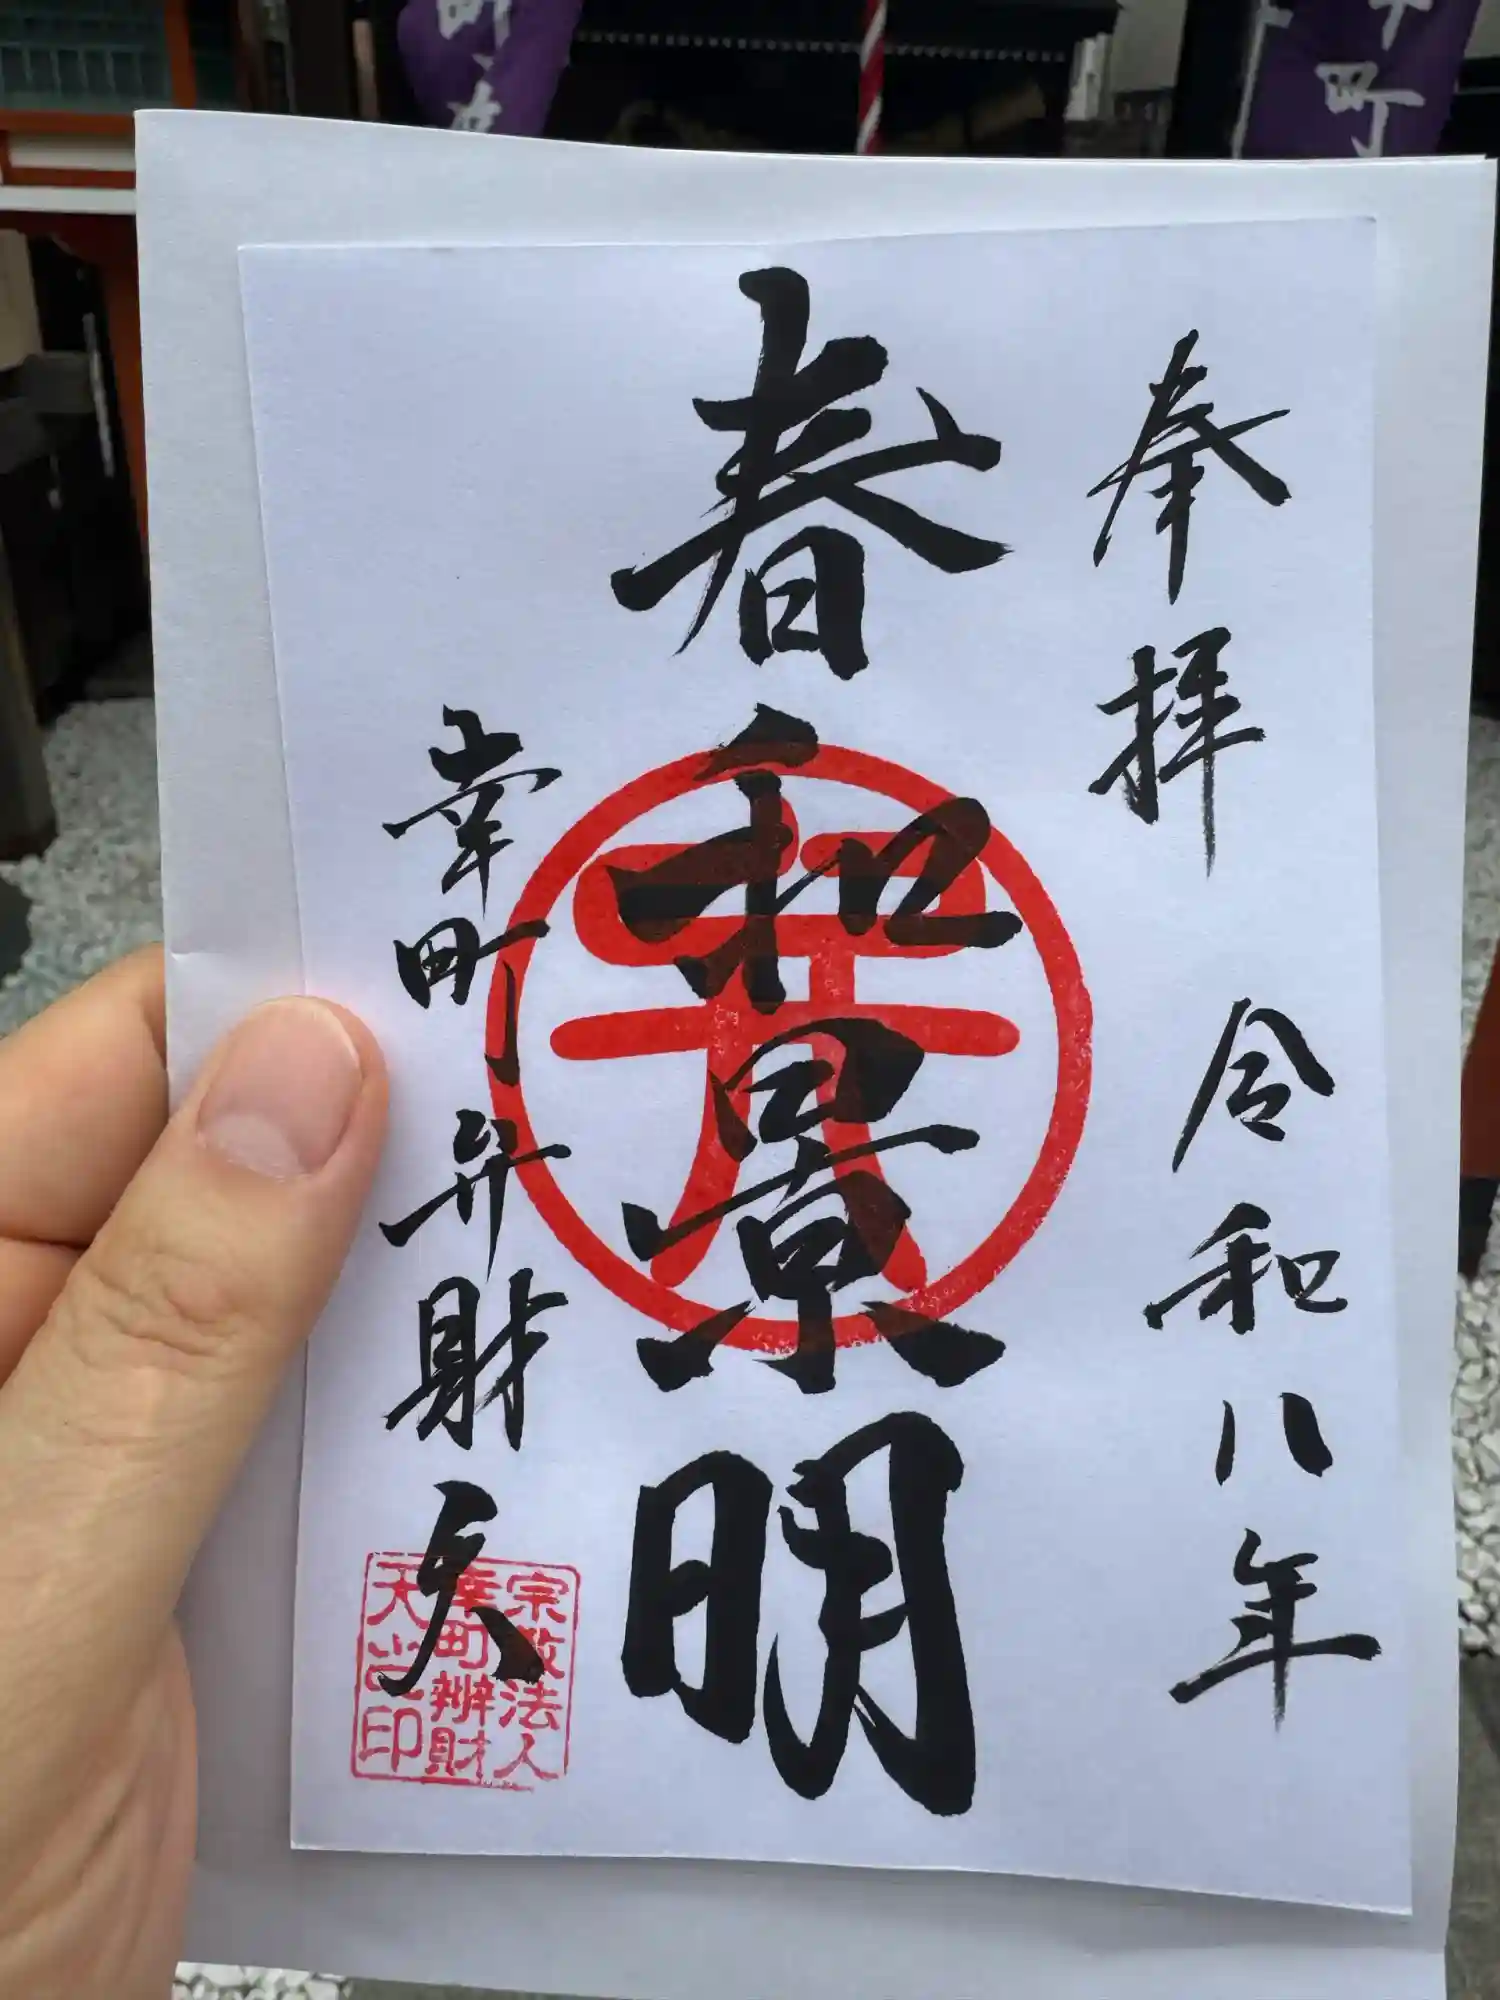 奉拝 令和八年
春和景明
幸町弁財天
宗教法人
幸町辨財
天之印
町